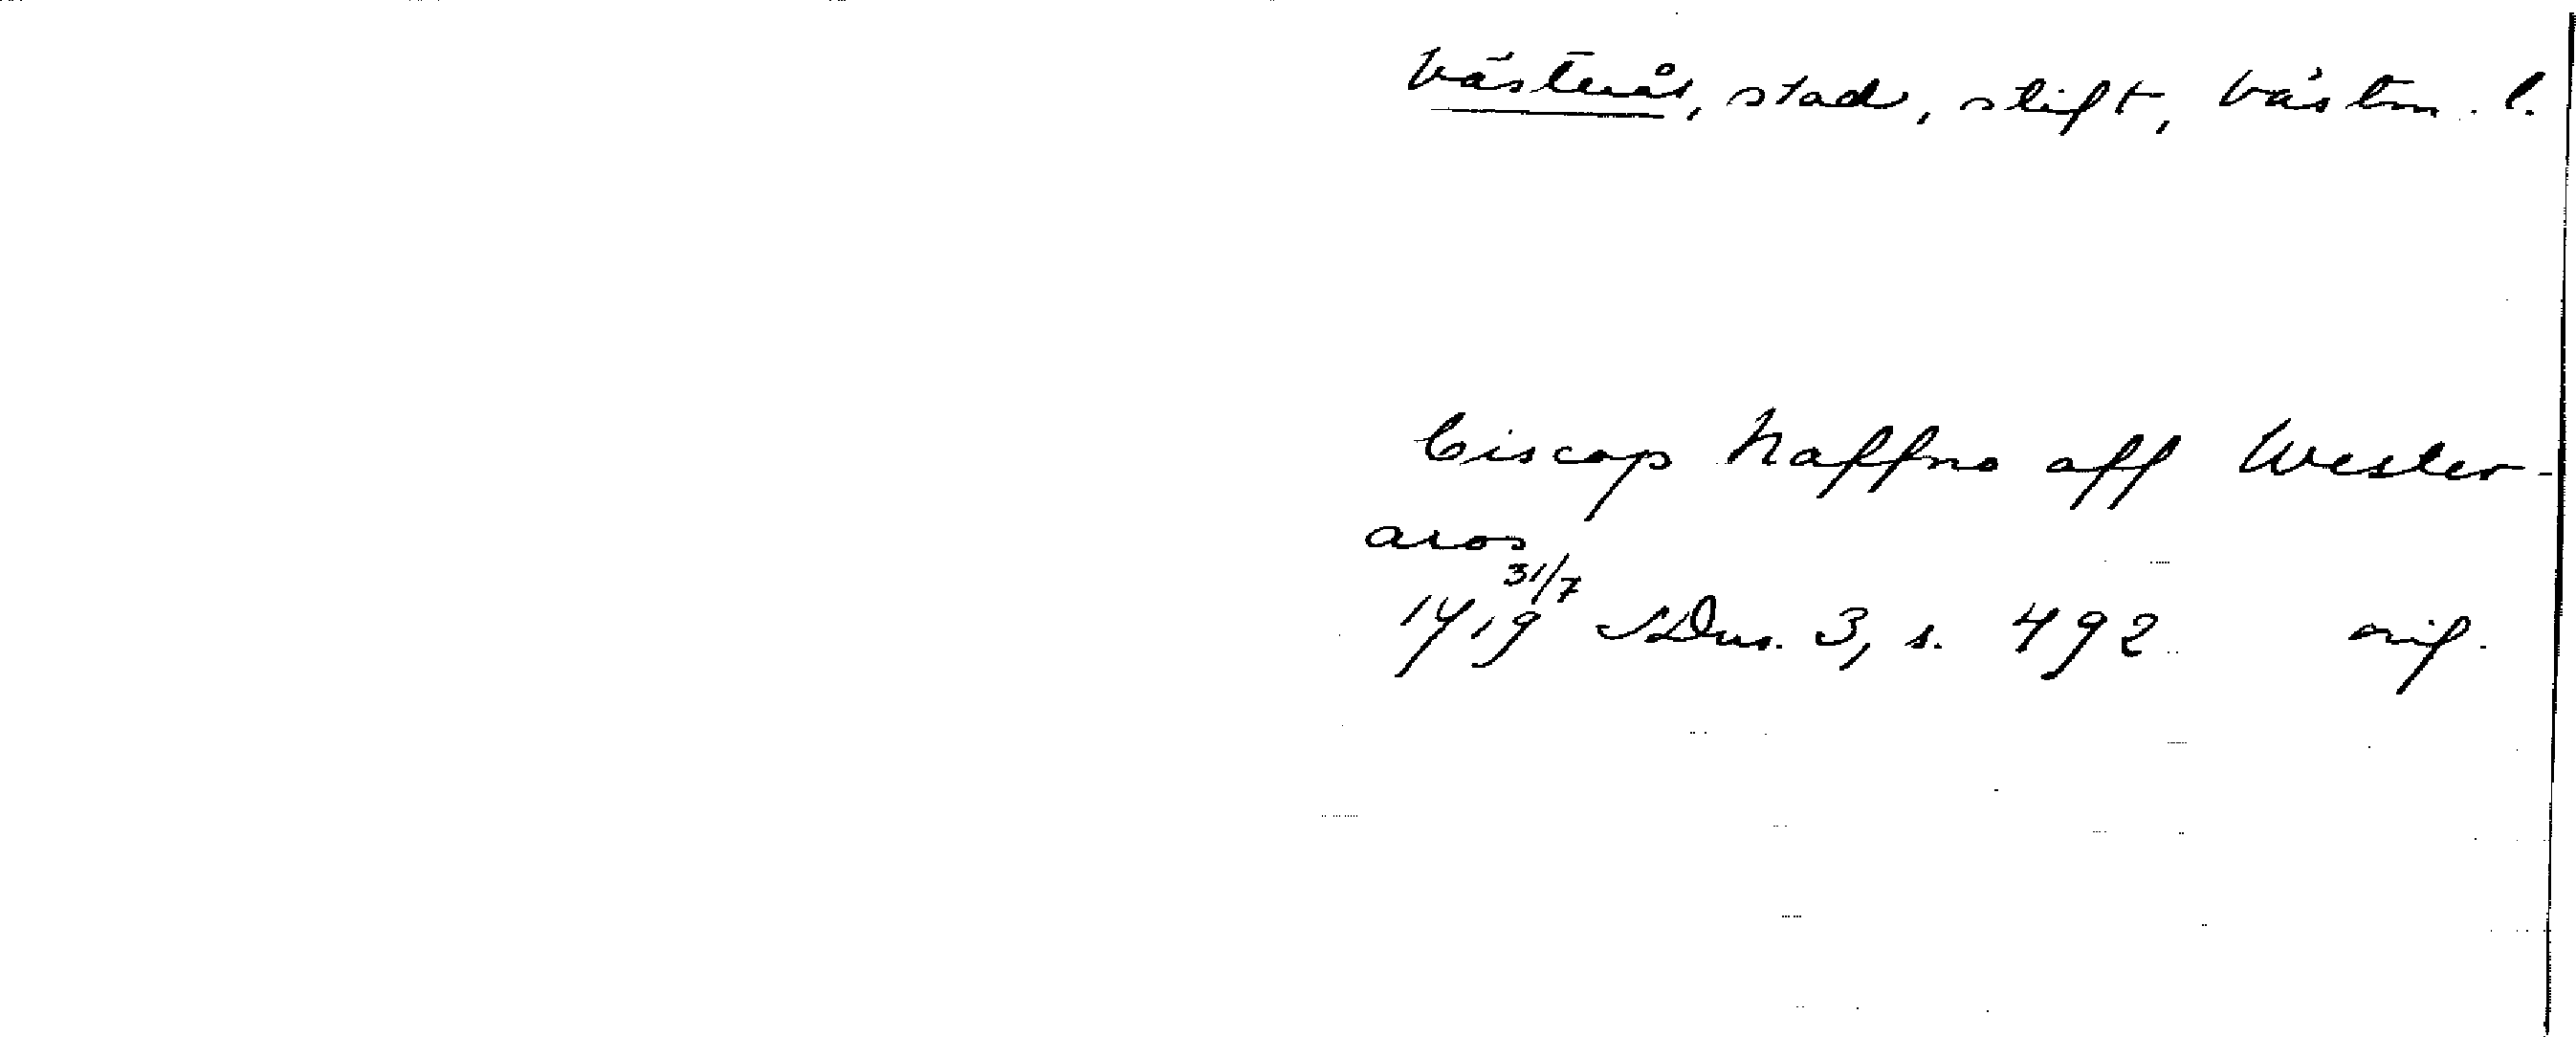 Västerås, stad, stift, Västm. l.
biscop Naffno aff Wester-
aros
1419 31/7 SDns. 3, s. 492 orig.